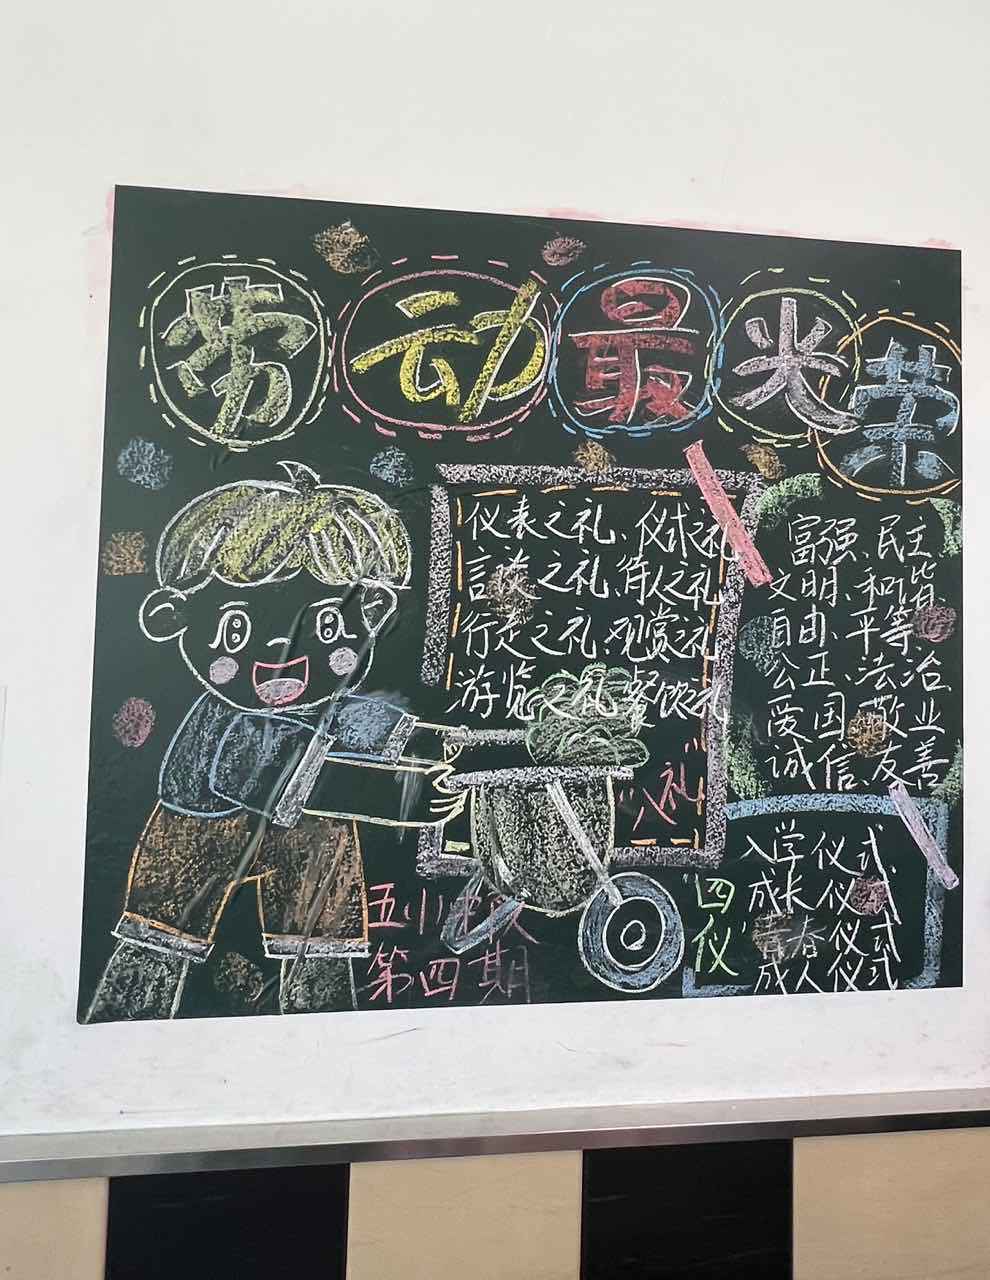 劳动最光荣
仪表之礼、仪式之礼
言谈之礼、待人之礼
行走之礼、观赏之礼
游览之礼、餐饮之礼
"八礼"
富强、民主
文明、和谐
自由、平等
公正、法治
爱国、敬业
诚信、友善
四仪
入学仪式
成长仪式
青春仪式
成人仪式
五小
第四期